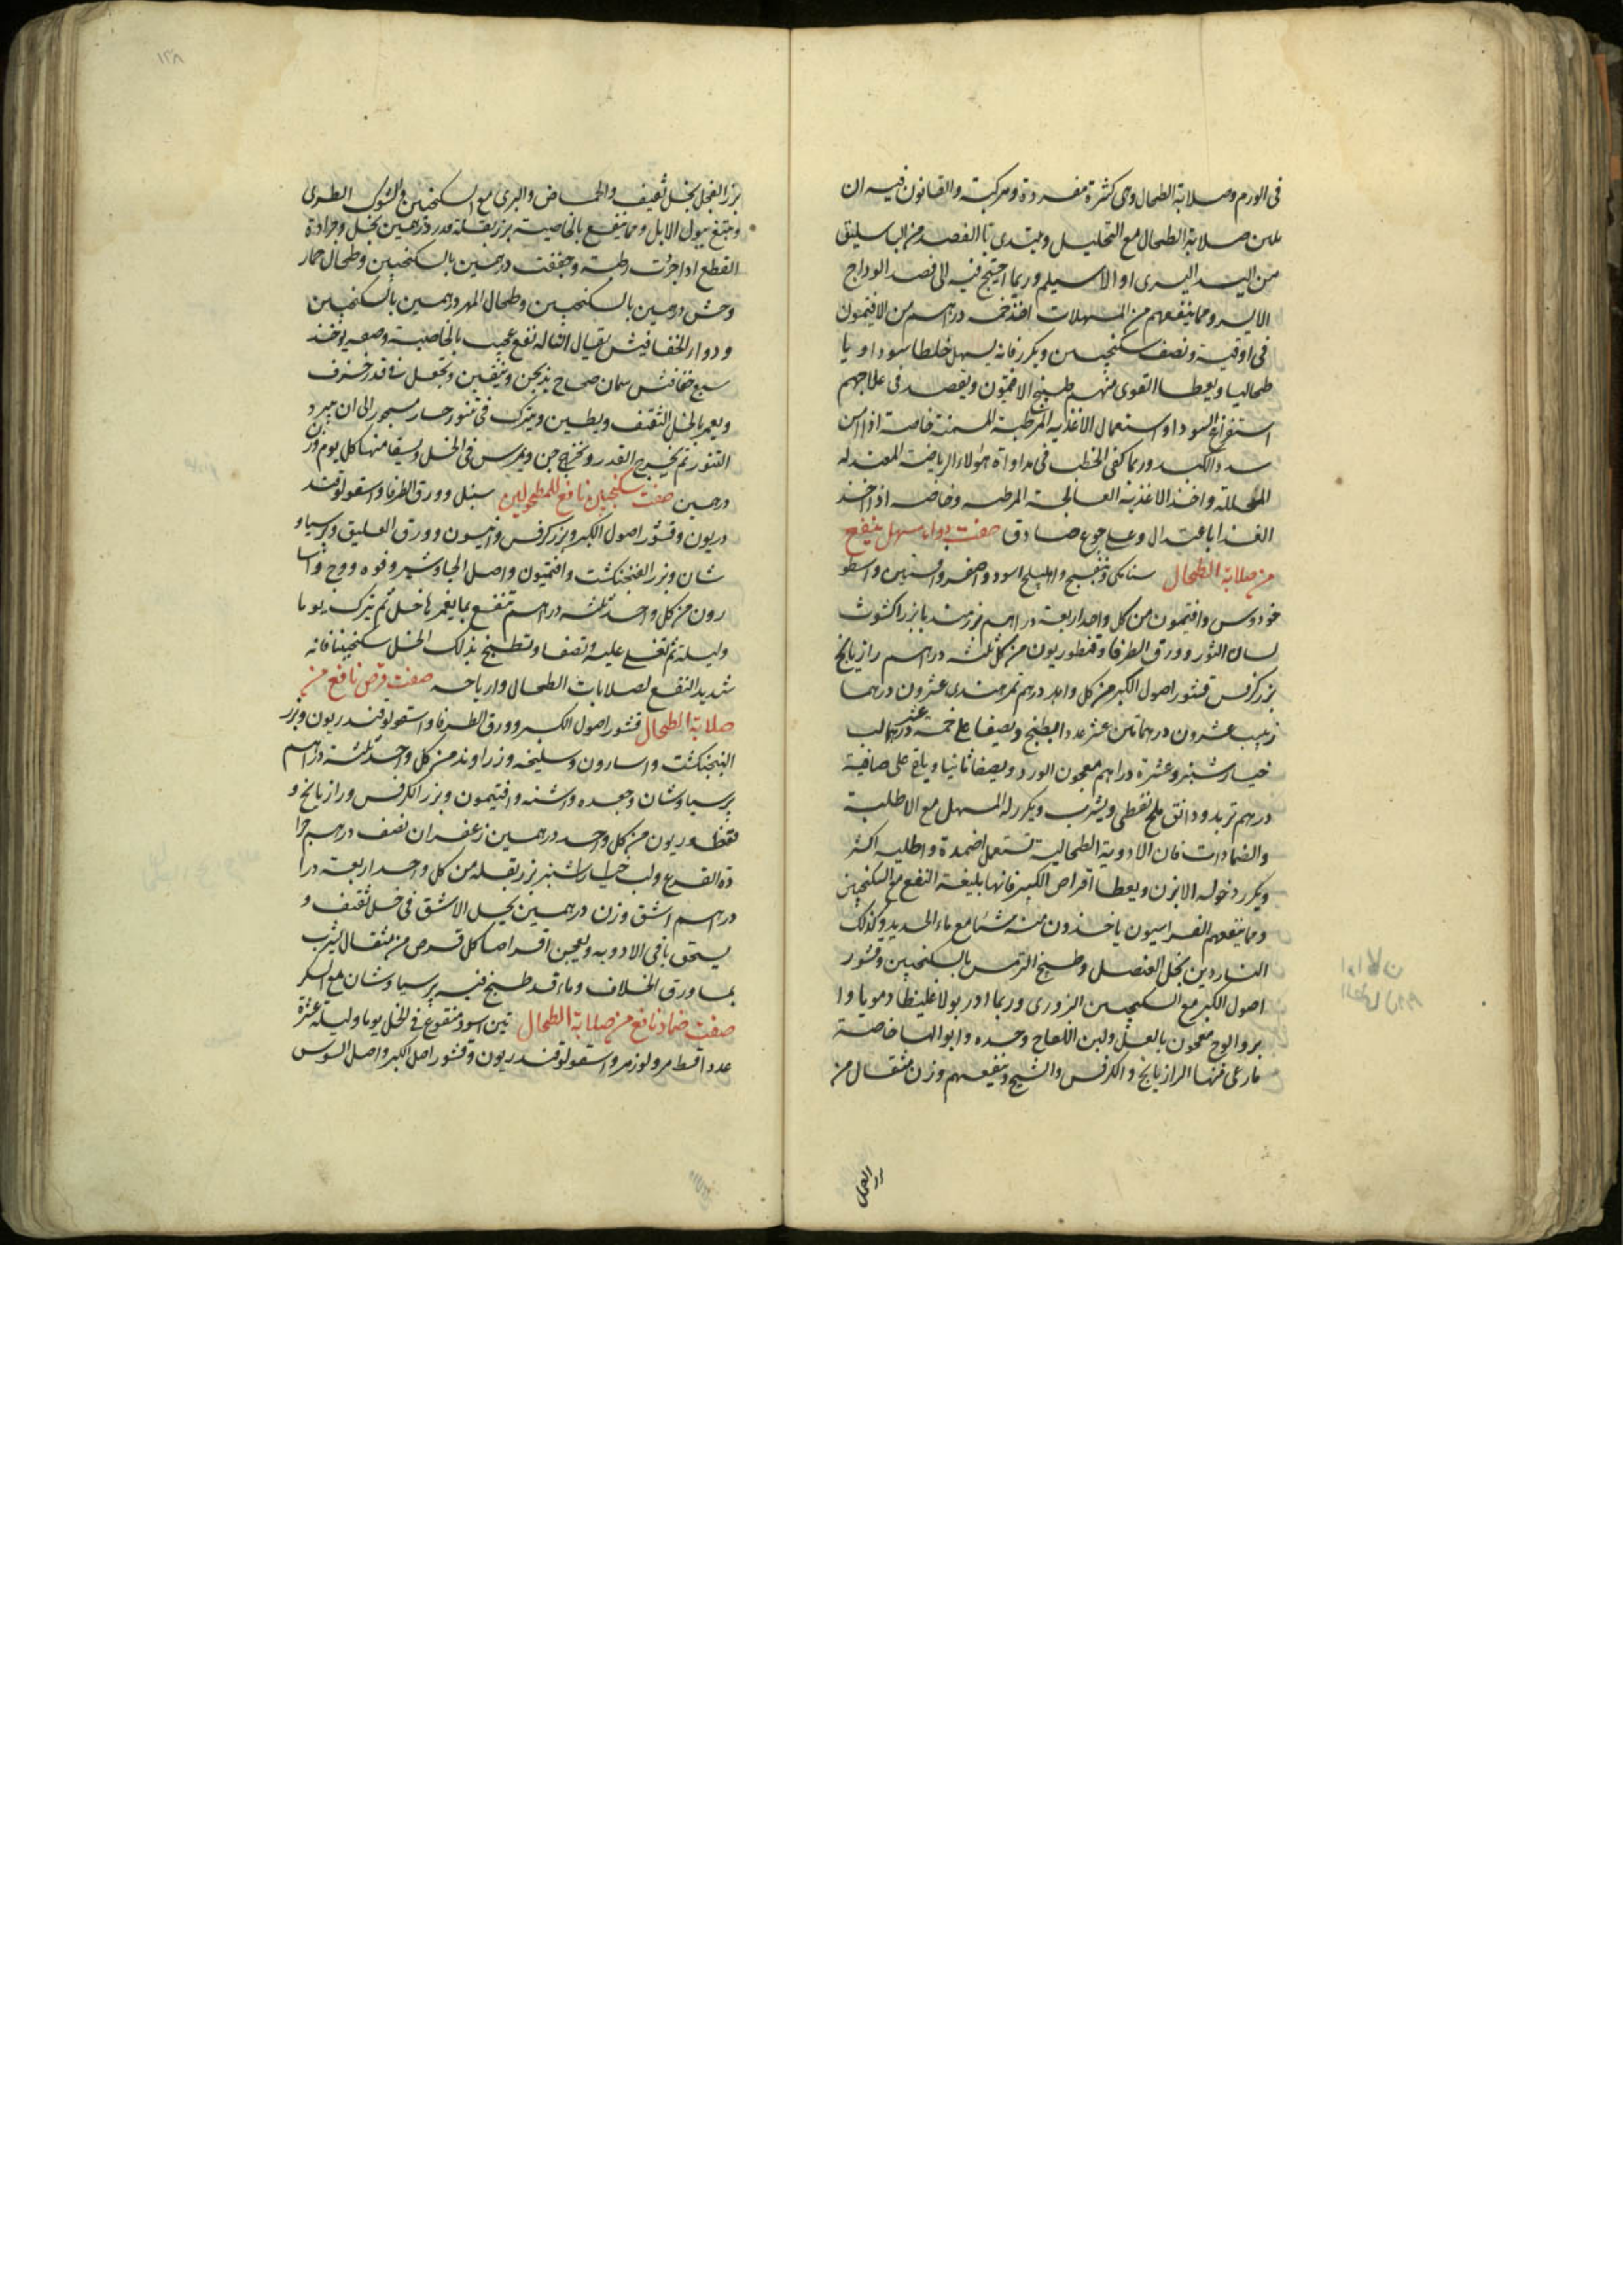 فى الورم وصلابة الطحال وهى كثرة مفردة ومركبة والقانون فيه ان
يلين صلابة الطحال مع التحليل ويبتدى بالفصد من الباسليق
من اليد اليسرى او الاسيلم وربما احتيج فيه الى فصد الوداج
الايسر ومما ينفعهم من المسهلات اخذ خمسة دراهم من الافتيمون
فى اوقية ونصف سكنجبين ويكرر فانه يسهل خلطا سوداويا
طحاليا ويعطا القوى منهم طبيخ الافتيمون ويقصد فى علاجهم
استفراغ السودا واستعمال الاغذيه المرطبة المسمنة خاصة اذا امن
سدد الكبد وربما كفى الخطب فى مداواة هولاء الرياضة المعتدله
المحللة واخذ الاغذية الفالجة المرطبه وخاصه اذا اخذ
الغذا باعتدال وعلى جوع صادق صفت دوا مسهل ينفع
من صلابة الطحال سنامكى وبنفسج واهليلج اسود واصفر وافسنتين واسطو
خودوس وافتيمون من كل واحد اربعة دراهم بزر هندبا بزر اكشوث
لسان الثور وورق الطرفا وقنطوريون من كل ثلثه دراهم رازيانج
بزر كرفس قشور اصول الكبر من كل واحد درهم تمر هندى عشرون درهما
زبيب عشرون درهما تين عشر عددا يطبخ ويصفا على خمسة عشر درهما لب
خيارشنبر وعشرة دراهم معجون الورد ويصفا ثانيا ويلقى على صافية
درهم تربد ودانق ملح نفطى ويشرب ويكرر له المسهل مع الاطلية
والضمادات فان الادوية الطحالية تستعمل اضمدة واطليه اكثر
ويكرر دخوله الابزن ويعطا اقراص الكبر فانها بليغة النفع مع السكنجبين
ومما ينفعهم الفراسيون ياخذون منه شيا مع ماء الحديد وكذلك
الناردين بخل العنصل وطبيخ الترمس بالسكنجبين وقشور
اصول الكبر مع السكنجبين البزورى وربما ادر بولا غليظا دمويا وا
بروا الوج معجون بالعسل ولبن اللقاح وحده وابوالها خاصة
ما رعى منها الرازيانج والكرفس والشيح وينفعهم وزن مثقال من
بزر الفجل
١٢٨
بزر الفجل بخل ثقيف والحماض والبرى مع السكنجبين والشوك الطرى
ومما ينفع بالخاصية بزر بقلة قدر درهمين بخل وجرادة
القطع اذا جردت رطبة وجففت درهمين بالسكنجبين وطحال حمار
وحش درهمين بالسكنجبين وطحال المهر درهمين بالسكنجبين
ودواء الخفافيش يقال انه له نفع عجيب بالخاصية وصفته يوخذ
سبع خفافش سمان صحاح يذبحن وينقين وتجعل فى قدر خزف
ويغمر بالخل الثقيف ويطين ويترك فى تنور حار مسجور الى ان يبرد
التنور ثم يخرج القدر وتخرج ويمرس فى الخل ويسقا منها كل يوم وزن
درهمين صفت سكنجبين نافع للمطحولين سنبل وورق الطرفا واسقولوقند
دريون وقشور اصول الكبر وبزر كرفس وانيسون وورق العليق وبرسياو
شان وبزر الفنجنكشت وافتيمون واصل الجاوشير وفوه ووج واسا
رون من كل واحد ثلثه دراهم تنقع بما يغمرها خل ثم يترك يوما
وليلة ثم تغلى عليه وتصفا وتطبخ بذلك الخل سكنجبينا فانه
شديد النفع لصلابات الطحال وارياحه صفت قرص نافع من
صلابة الطحال قشور اصول الكبر وورق الطرفا واسقولوقندريون وبزر
البنجنكشت واسارون وسليخه وزراوند من كل واحد ثلثة دراهم
برسياوشان وجعده واشنه وافتيمون وبزر الكرفس ورازيانج و
قنطوريون من كل واحد درهمين زعفران نصف درهم جرا
دة القرع ولب خيار شنبر بزر بقله من كل واحد اربعة درا
دراهم اشق وزن درهمين يحل الاشق فى خل ثقيف و
يسحق باقى الادويه ويعجن اقراصا كل قرص من مثقال يشرب
بماء ورق الخلاف وماء قد طبخ فيه برسياوشان مع السكر
صفت ضماد نافع من صلابة الطحال تين اسود منقوع فى الخل يوما وليلة عشرة
عددا قسط مر ولوز مر واسقولوقندريون وقشور اصل الكبر واصل السوس